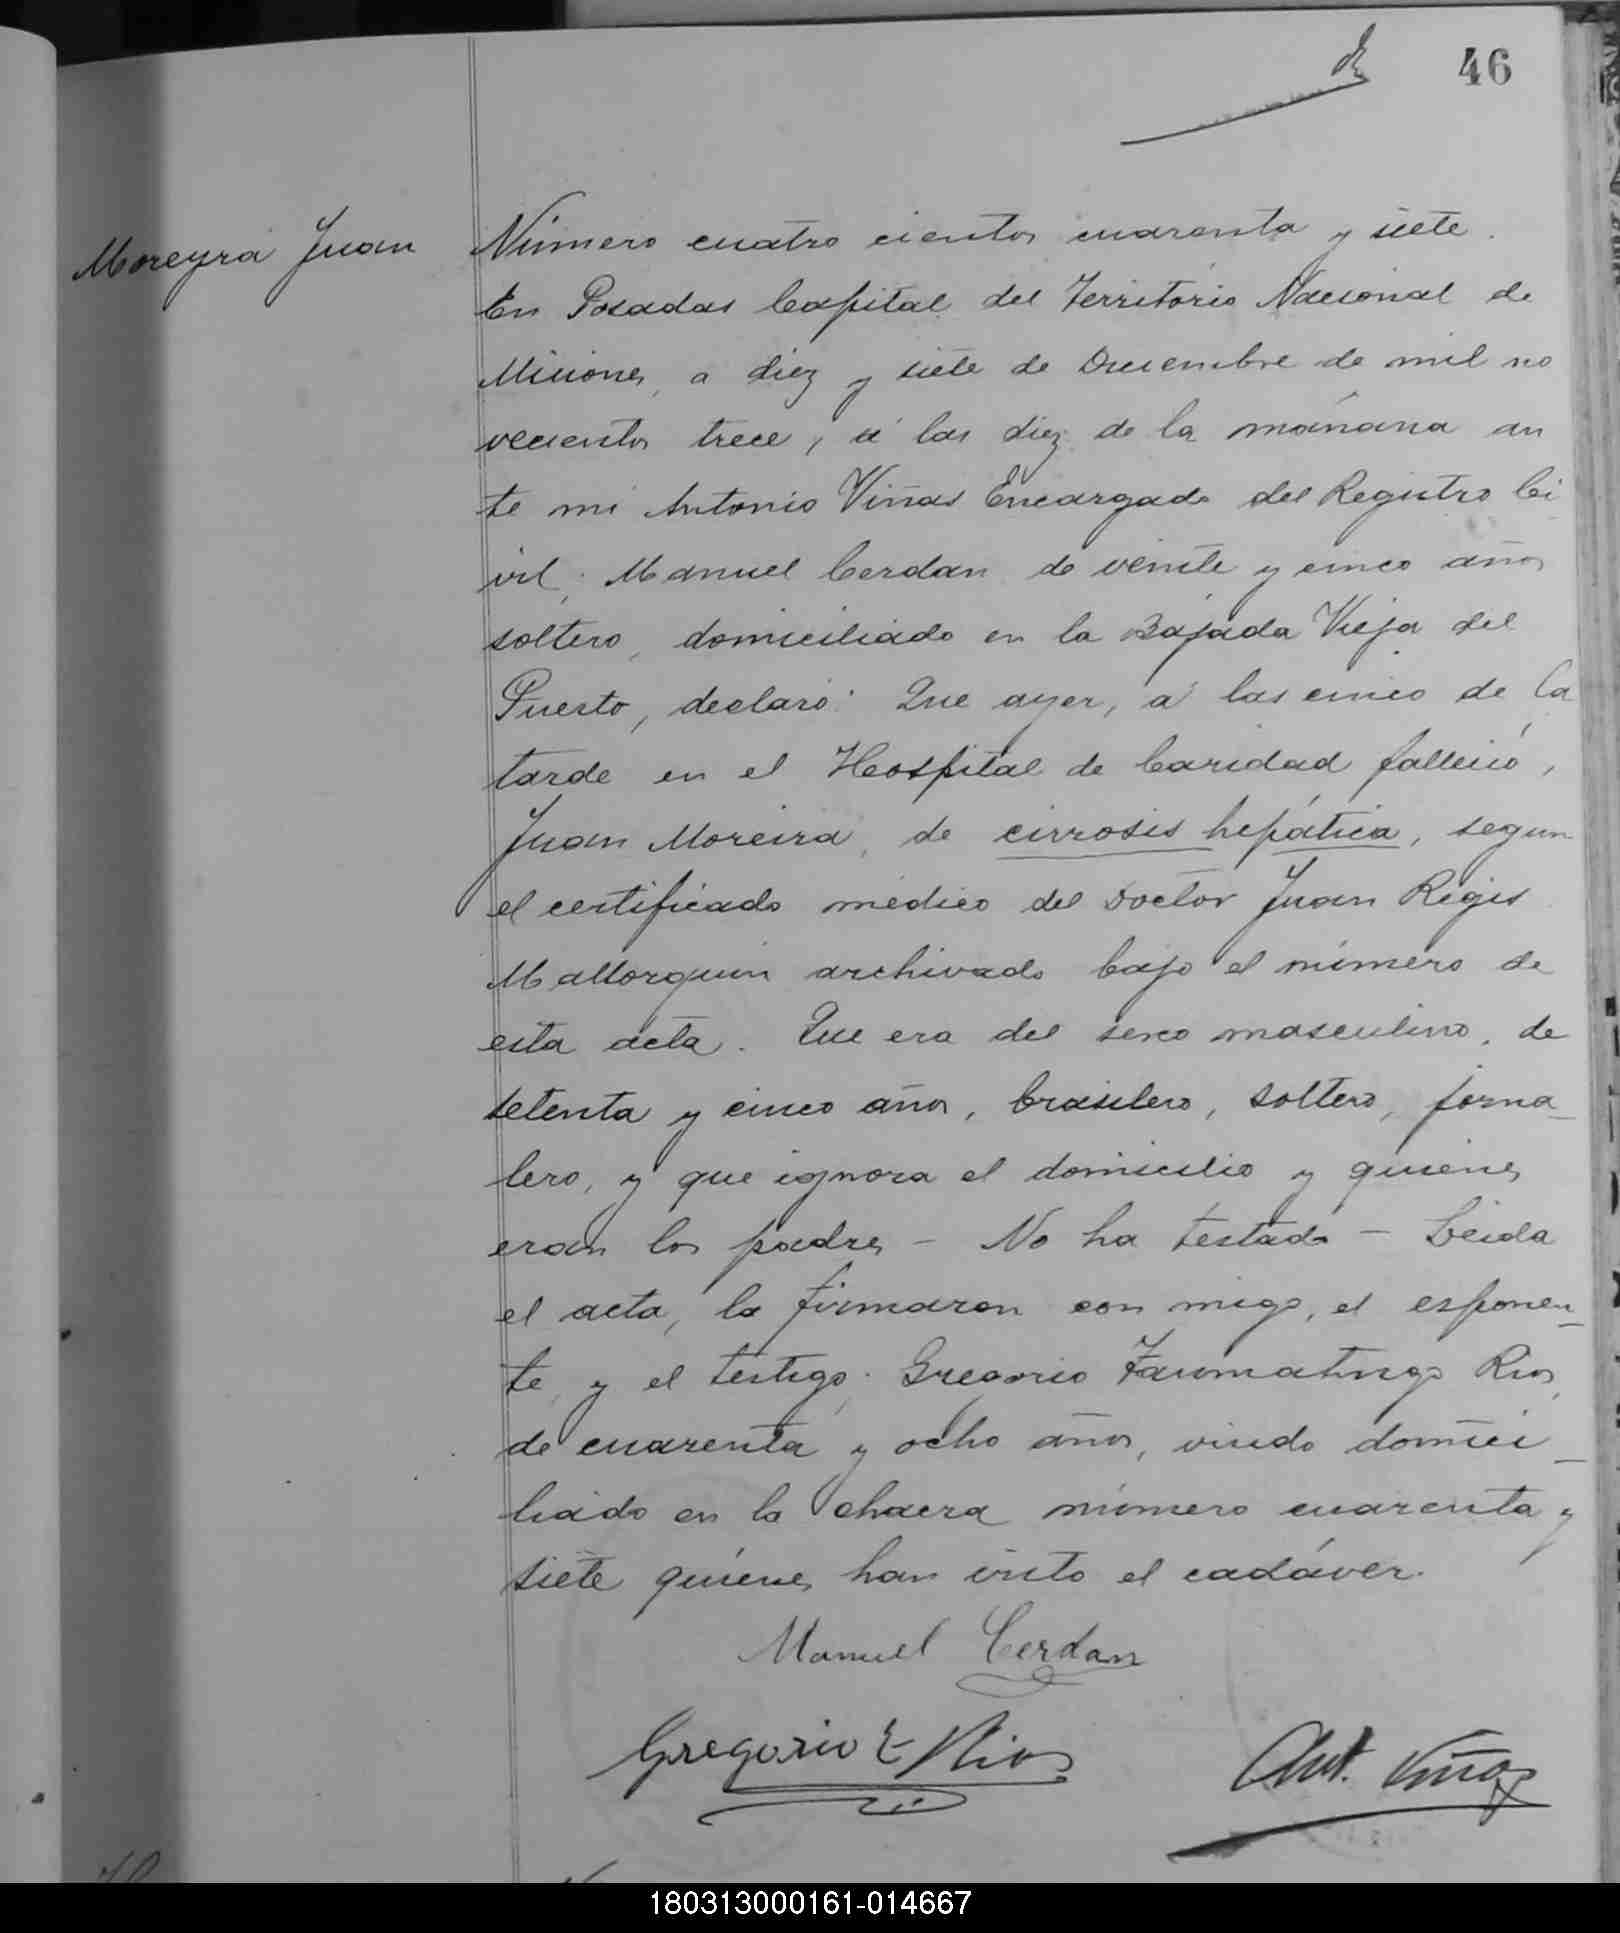 46
Moreyra Juan
Número cuatro cientos cuarenta y siete.
En Posadas Capital del Territorio Nacional de
Misiones, a diez y siete de Diciembre de mil no
vecientos trece, á las diez de la mañana an
te mi Antonio Viñas Encargado del Registro Ci
vil; Manuel Cerdan de veinte y cinco años
soltero, domiciliado en la Bajada Vieja del
Puerto, declaró: Que ayer, á las cinco de la
tarde en el Hospital de Caridad falleció,
Juan Moreira, de cirrosis hepática, segun
el certificado médico del Doctor Juan Régis
Mallorquin archivado bajo el número de
esta acta. Que era del sexo masculino, de
setenta y cinco años, brasilero, soltero, jorna-
lero, y que ignora el domicilio y quienes
eran los padres - No ha testado - Leida
el acta, la firmaron con migo, el esponen-
te, y el testigo; Gregorio Rios,
de cuarenta y ocho años, viudo domici-
liado en la chacra número cuarenta y
siete quienes han visto el cadáver.
Manuel Cerdan
Gregorio E Rios
Ant. Viñas
180313000161-014667